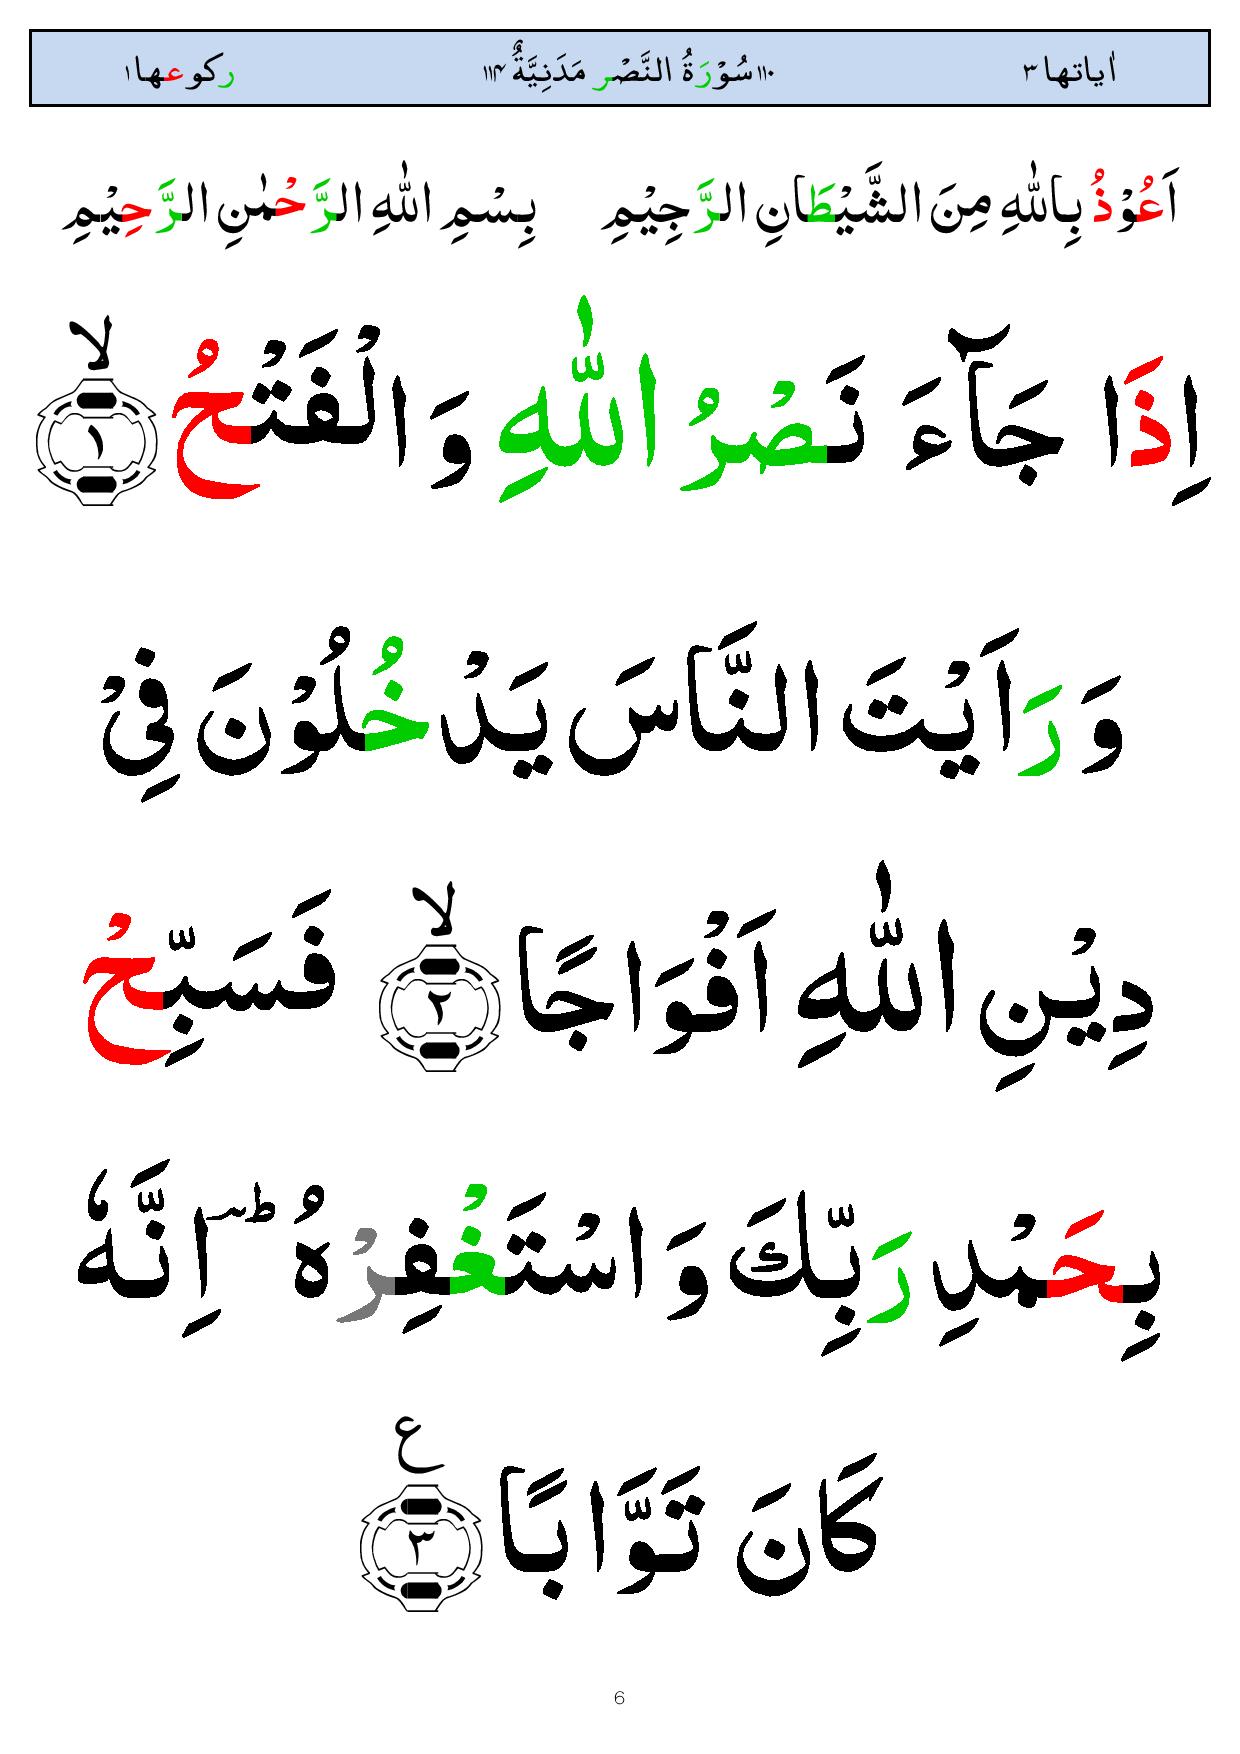 اٰیاتھا ۳ ۱۱۰ سُوْرَۃُ النَّصْر مَدَنِیَّۃٌ ۱۱۴ رکوعھا ۱
اَعُوْذُ بِاللّٰهِ مِنَ الشَّيْطَانِ الرَّجِيْمِ بِسْمِ اللّٰهِ الرَّحْمٰنِ الرَّحِيْمِ
اِذَا جَآءَ نَصْرُ اللّٰهِ وَ الْفَتْحُ ۙ﴿۱﴾
وَ رَاَيْتَ النَّاسَ يَدْخُلُوْنَ فِیْ
دِيْنِ اللّٰهِ اَفْوَاجًا ۙ﴿۲﴾ فَسَبِّحْ
بِحَمْدِ رَبِّكَ وَ اسْتَغْفِرْهُ ؕۜ اِنَّهٗ
كَانَ تَوَّابًا ﴿۳﴾ ع
6